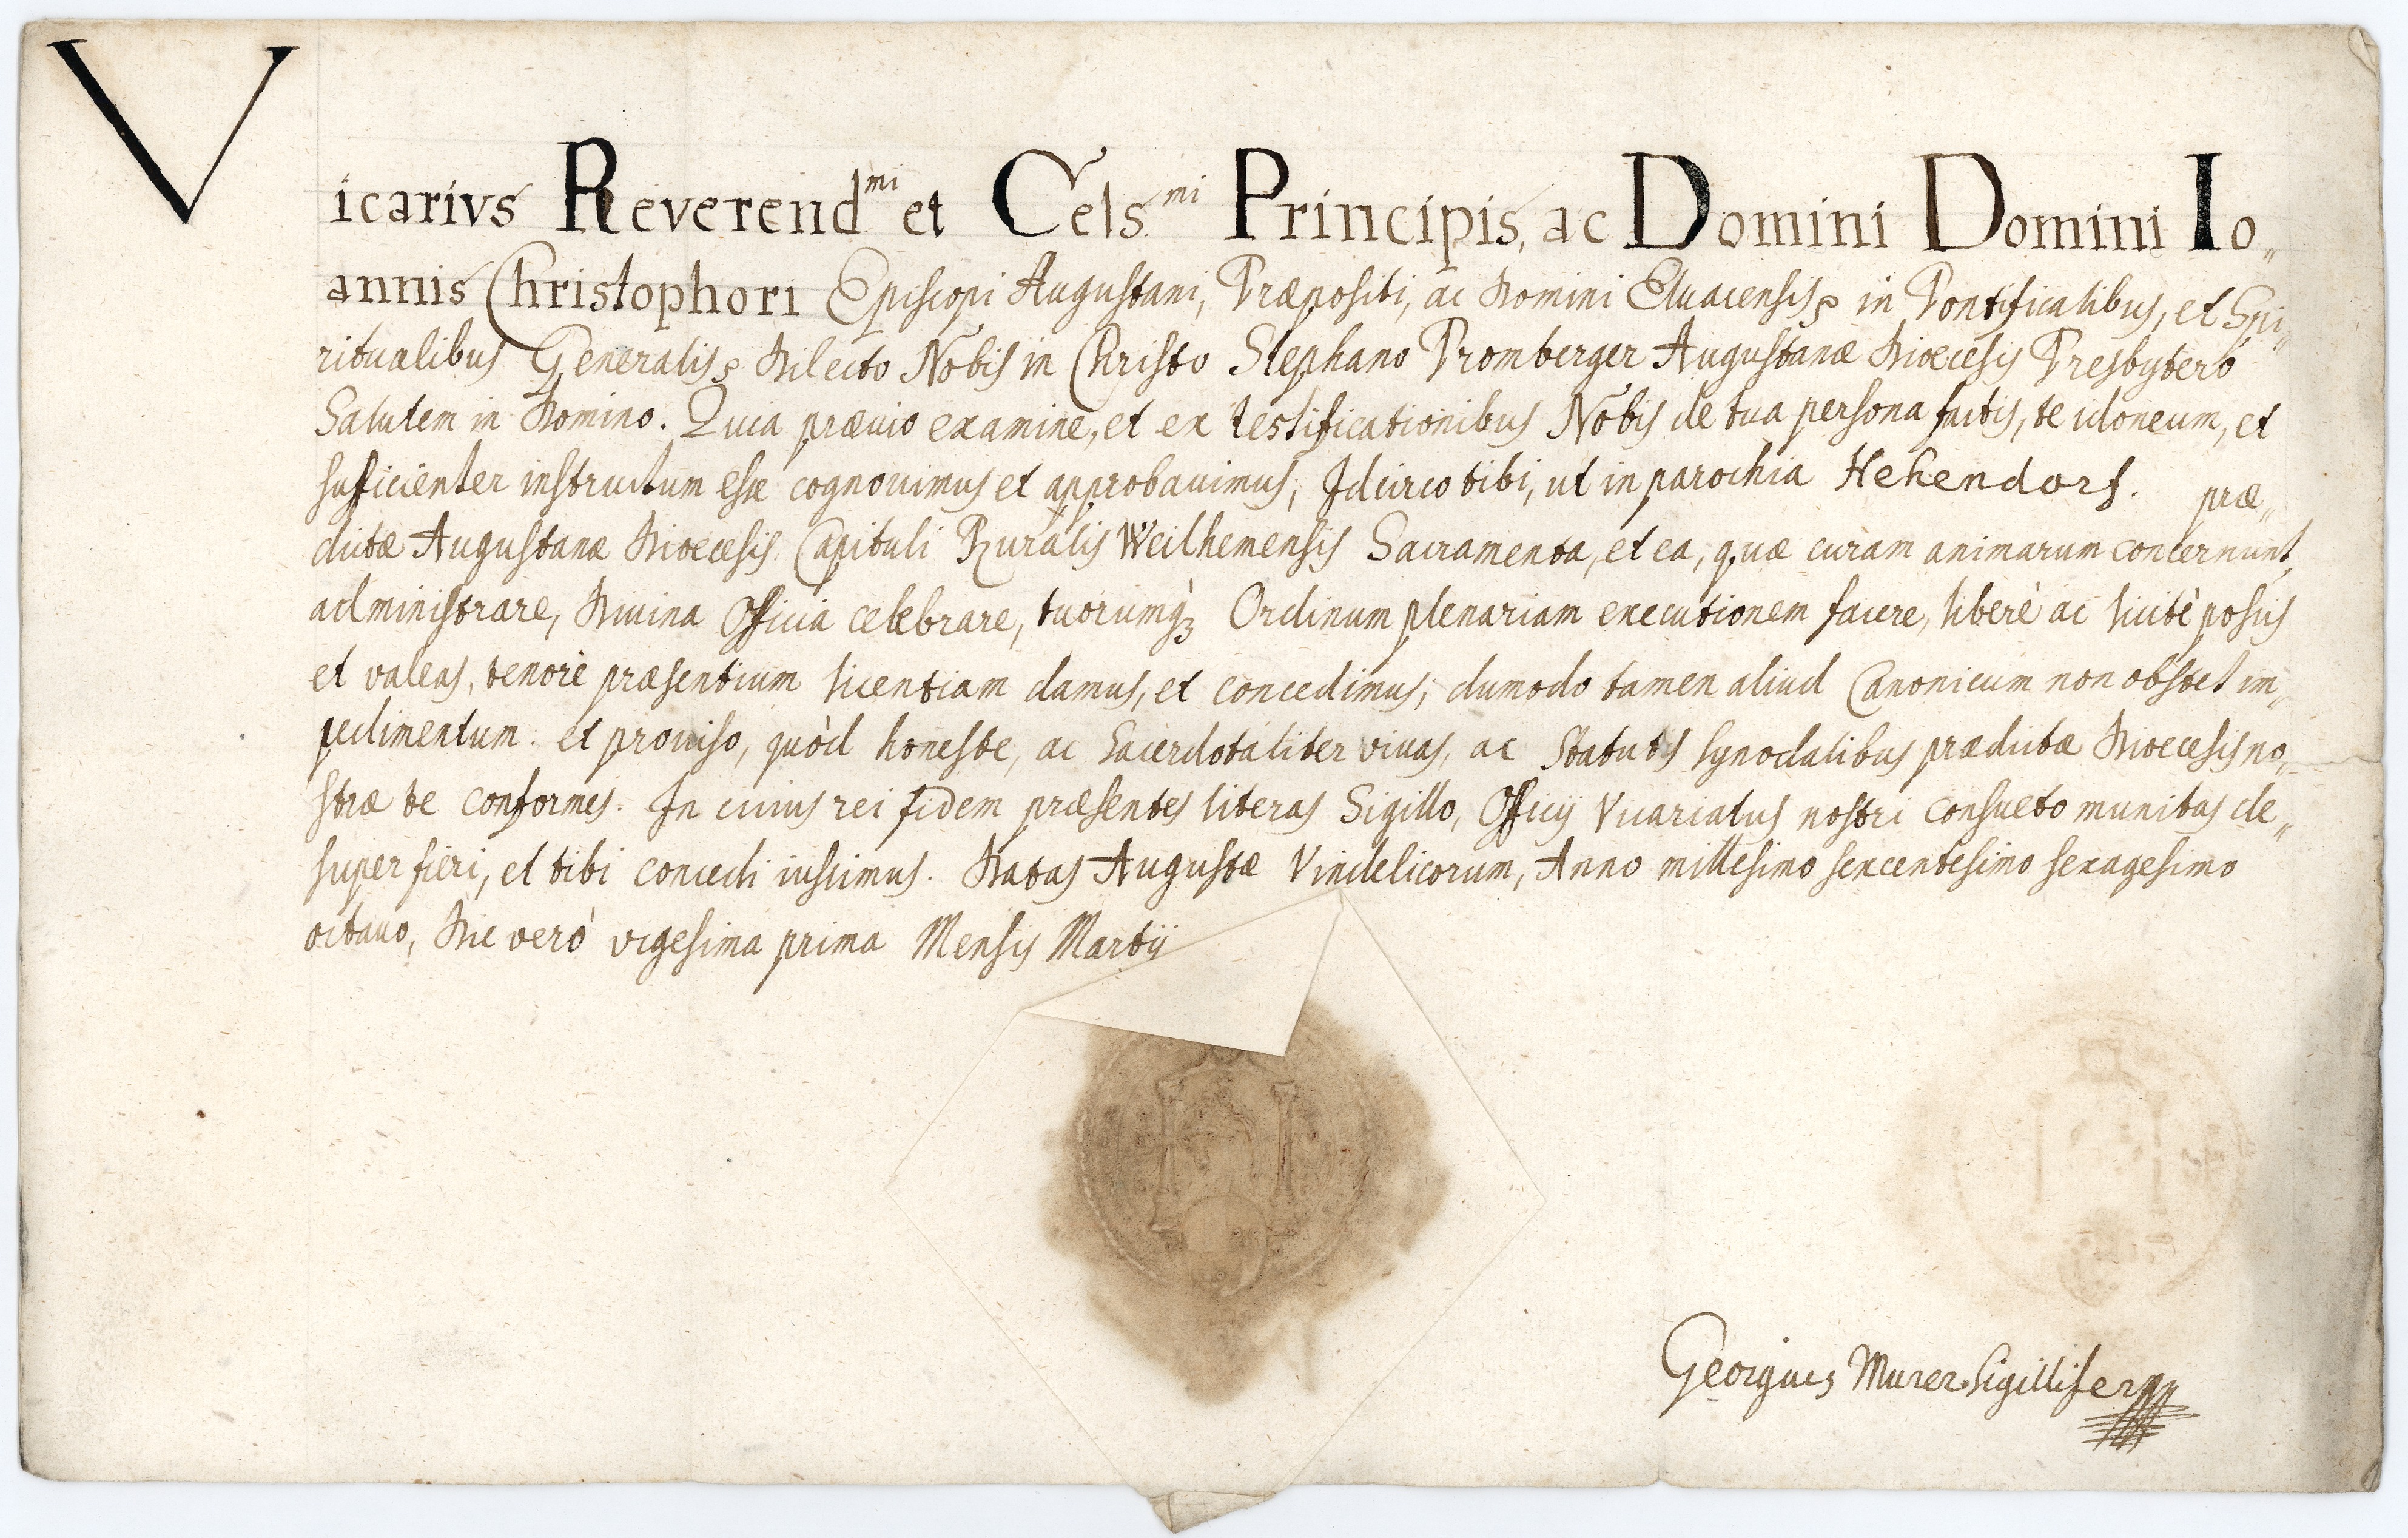 Vicarivs Reverend.mi et Cels.mi Principis, ac Domini Domini Io„
annis Christophori Episcopi Augustani, Præpositi, ac Domini Eluacensis, in Pontificalibus, et Spi„
ritualibus Generalis, Dilecto Nobis in Christo Stephano Promberger Augustanæ Diœcesis Presbytero
Salutem in Domino. Quia præuio examine, et ex testificationibus Nobis de tua persona factis, te idoneum, et
sufficienter instructum esse cognouimus et approbauimus; Idcirco tibi, ut in parochia Hekendorf. præ„
dictæ Augustanæ Diœcesis Capituli Ruralis Weilhemensis Sacramenta, et ea, quæ curam animarum concernunt,
administrare, Diuina Officia celebrare, tuorumq́ꝫ Ordinum plenariam executionem facere, liberè ac licitè possis
et valeas, tenore præsentium licentiam damus, et concedimus; dumodo tamen aliud Canonicum non obstet im„
pedimentum. et prouiso, quòd honeste, ac Sacerdotaliter viuas, ac Statutis synodalibus prædictæ Diœcesis no„
stræ te conformes. In cuius rei fidem præsentes literas Sigillo, Officij Vicariatus nostri consueto munitas de„
super fieri, et tibi concedi iussimus. Datas Augustæ Vindelicorum, Anno millesimo sexcentesimo sexagesimo
octauo, Die verò vigesima prima Mensis Martij
Georgius Murer Sigillifer